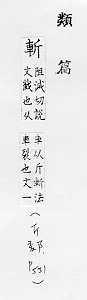 類篇
斬
阻減切說
文截也从
車从斤斬法
車裂也文一
(斤部, P.531)